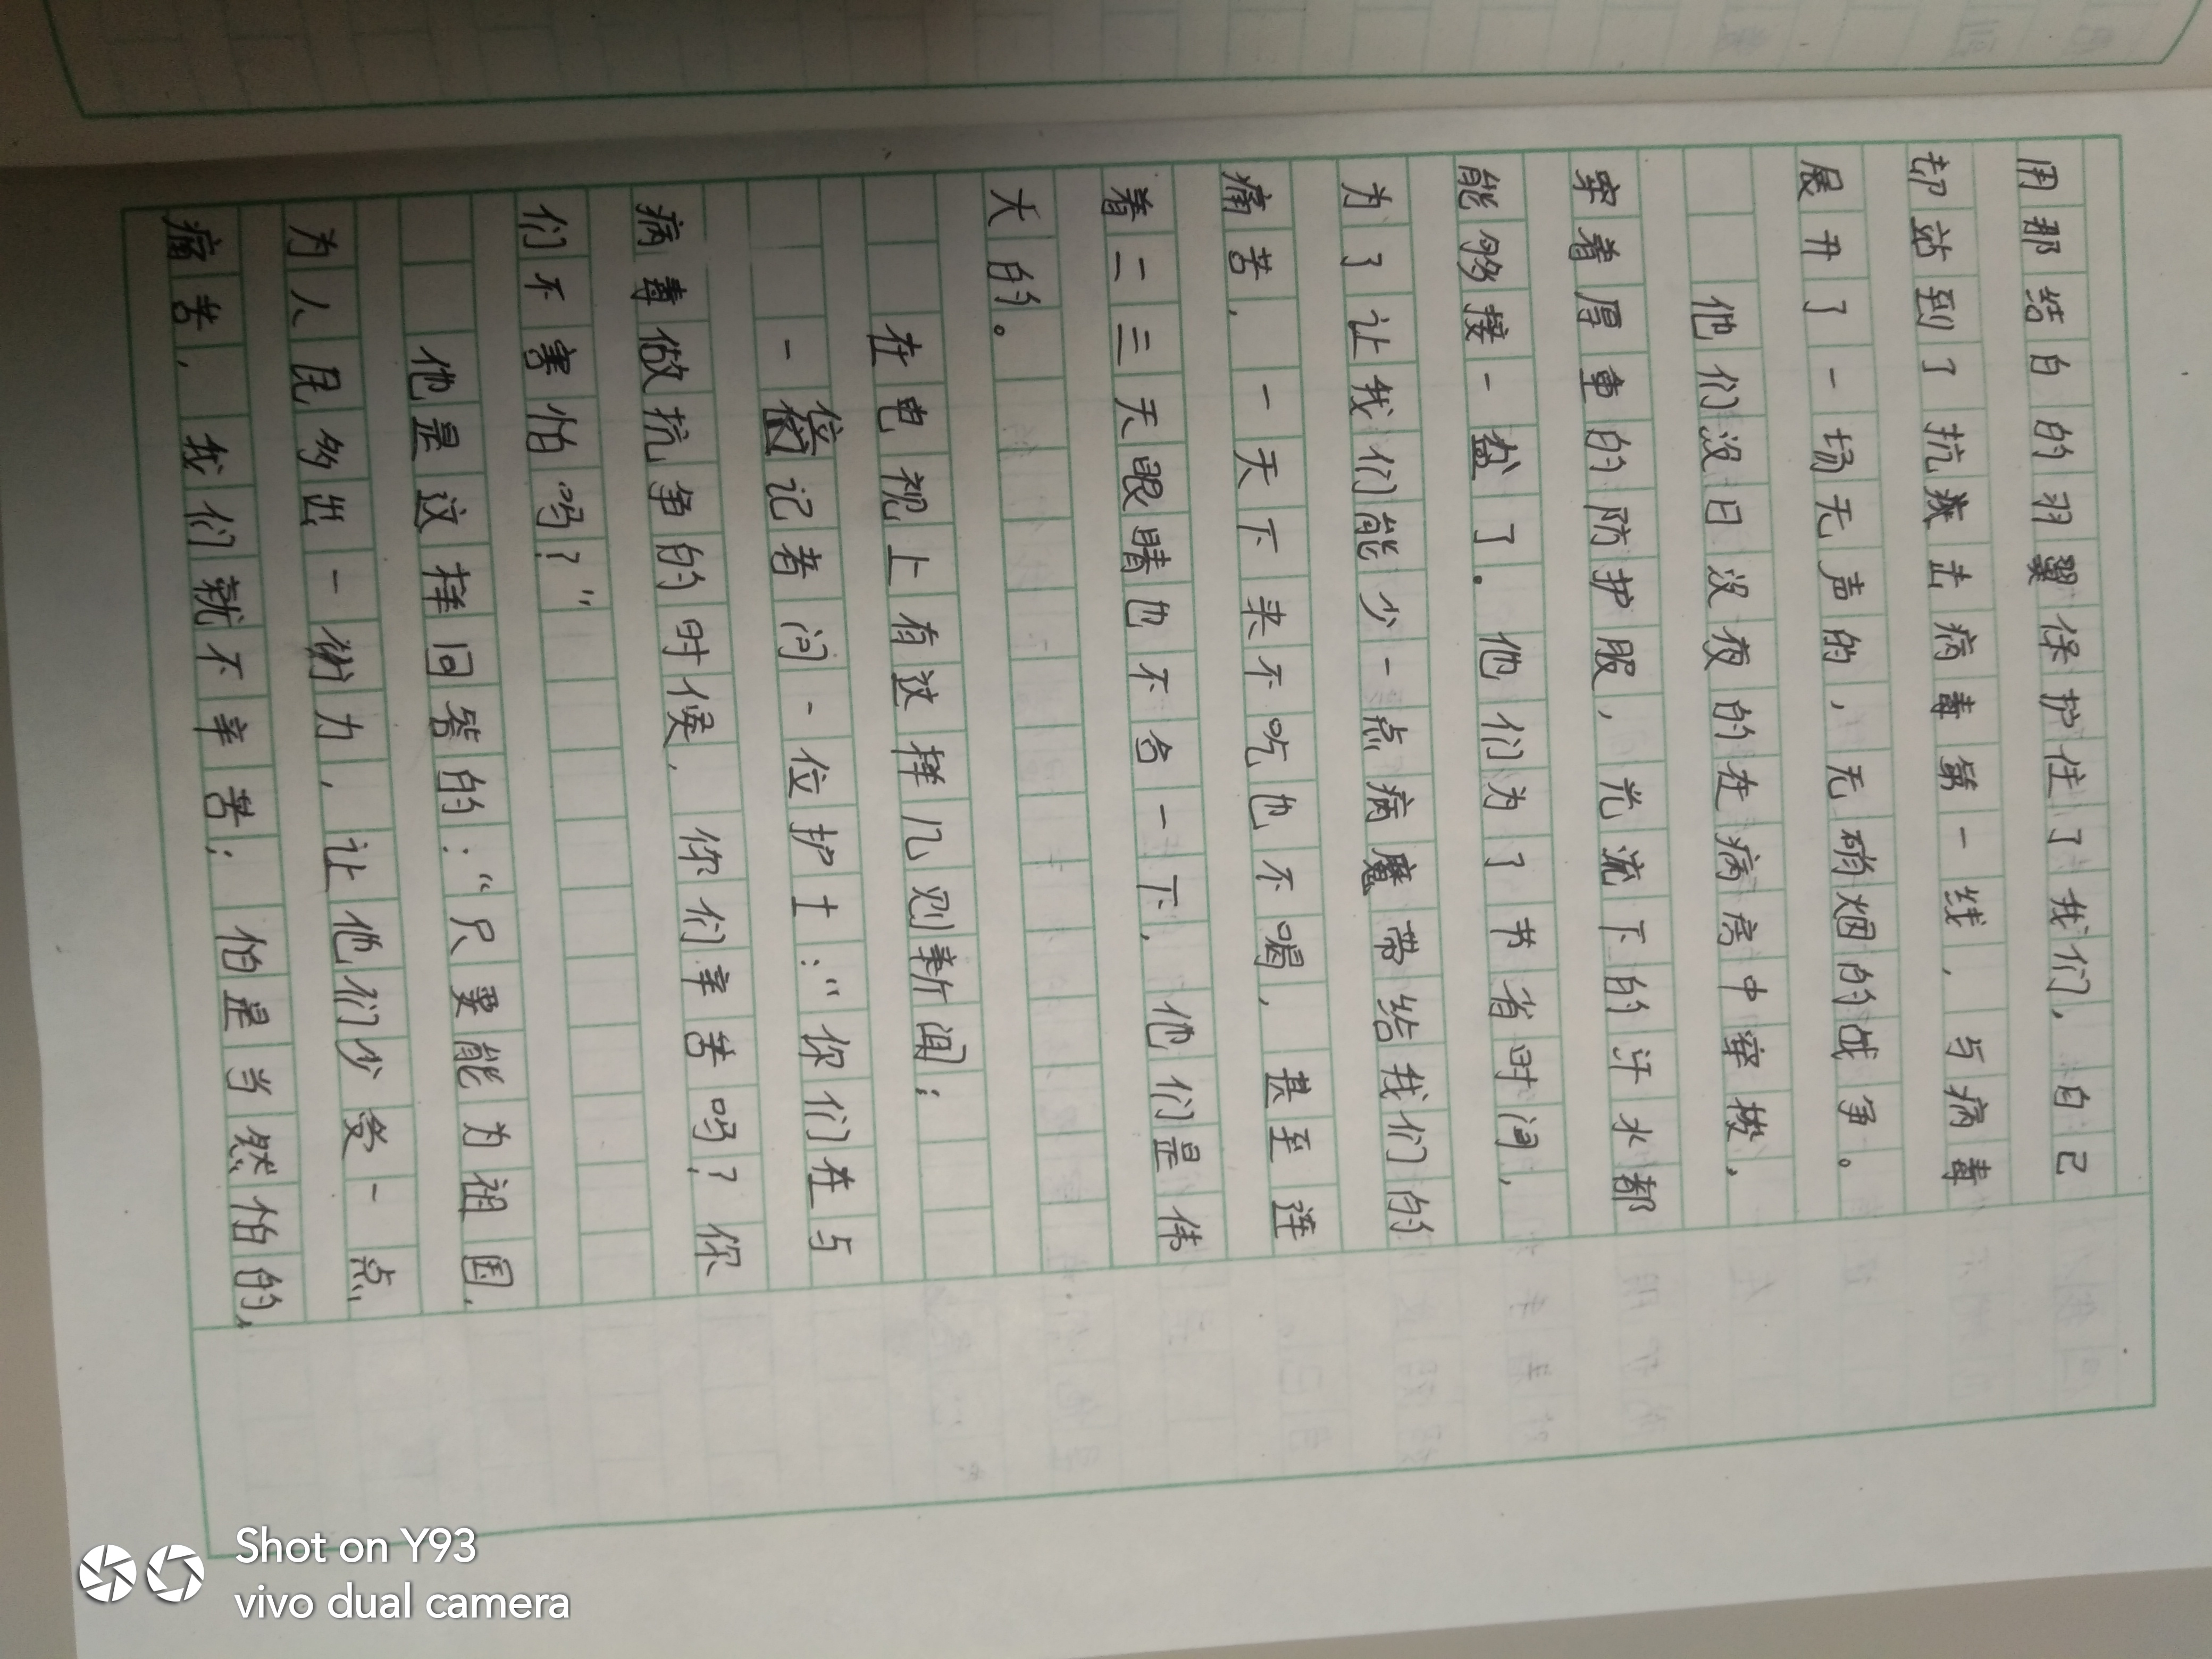 用那结白的羽翼保护住了我们，自己
却站到了抗击病毒第一线，与病毒
展开了一场无声的，无硝烟的战争。
他们没日没夜的在病房中穿梭，
穿着厚重的防护服，光流下的汗水都
能够接一盆了。他们为了节省时间，
为了让我们能少一点病魔带给我们的
痛苦，一天下来不吃也不喝，甚至连
着二三天眼睛也不合一下，他们是伟
大的。
在电视上有这样几则新闻：
一位记者问一位护士：“你们在与
病毒做抗争的时候，你们辛苦吗？你
们不害怕吗？”
他是这样回答的：“只要能为祖国，
为人民多出一份力，让他们少受一点
痛苦，我们就不辛苦；怕是当然怕的，
Shot on Y93
vivo dual camera